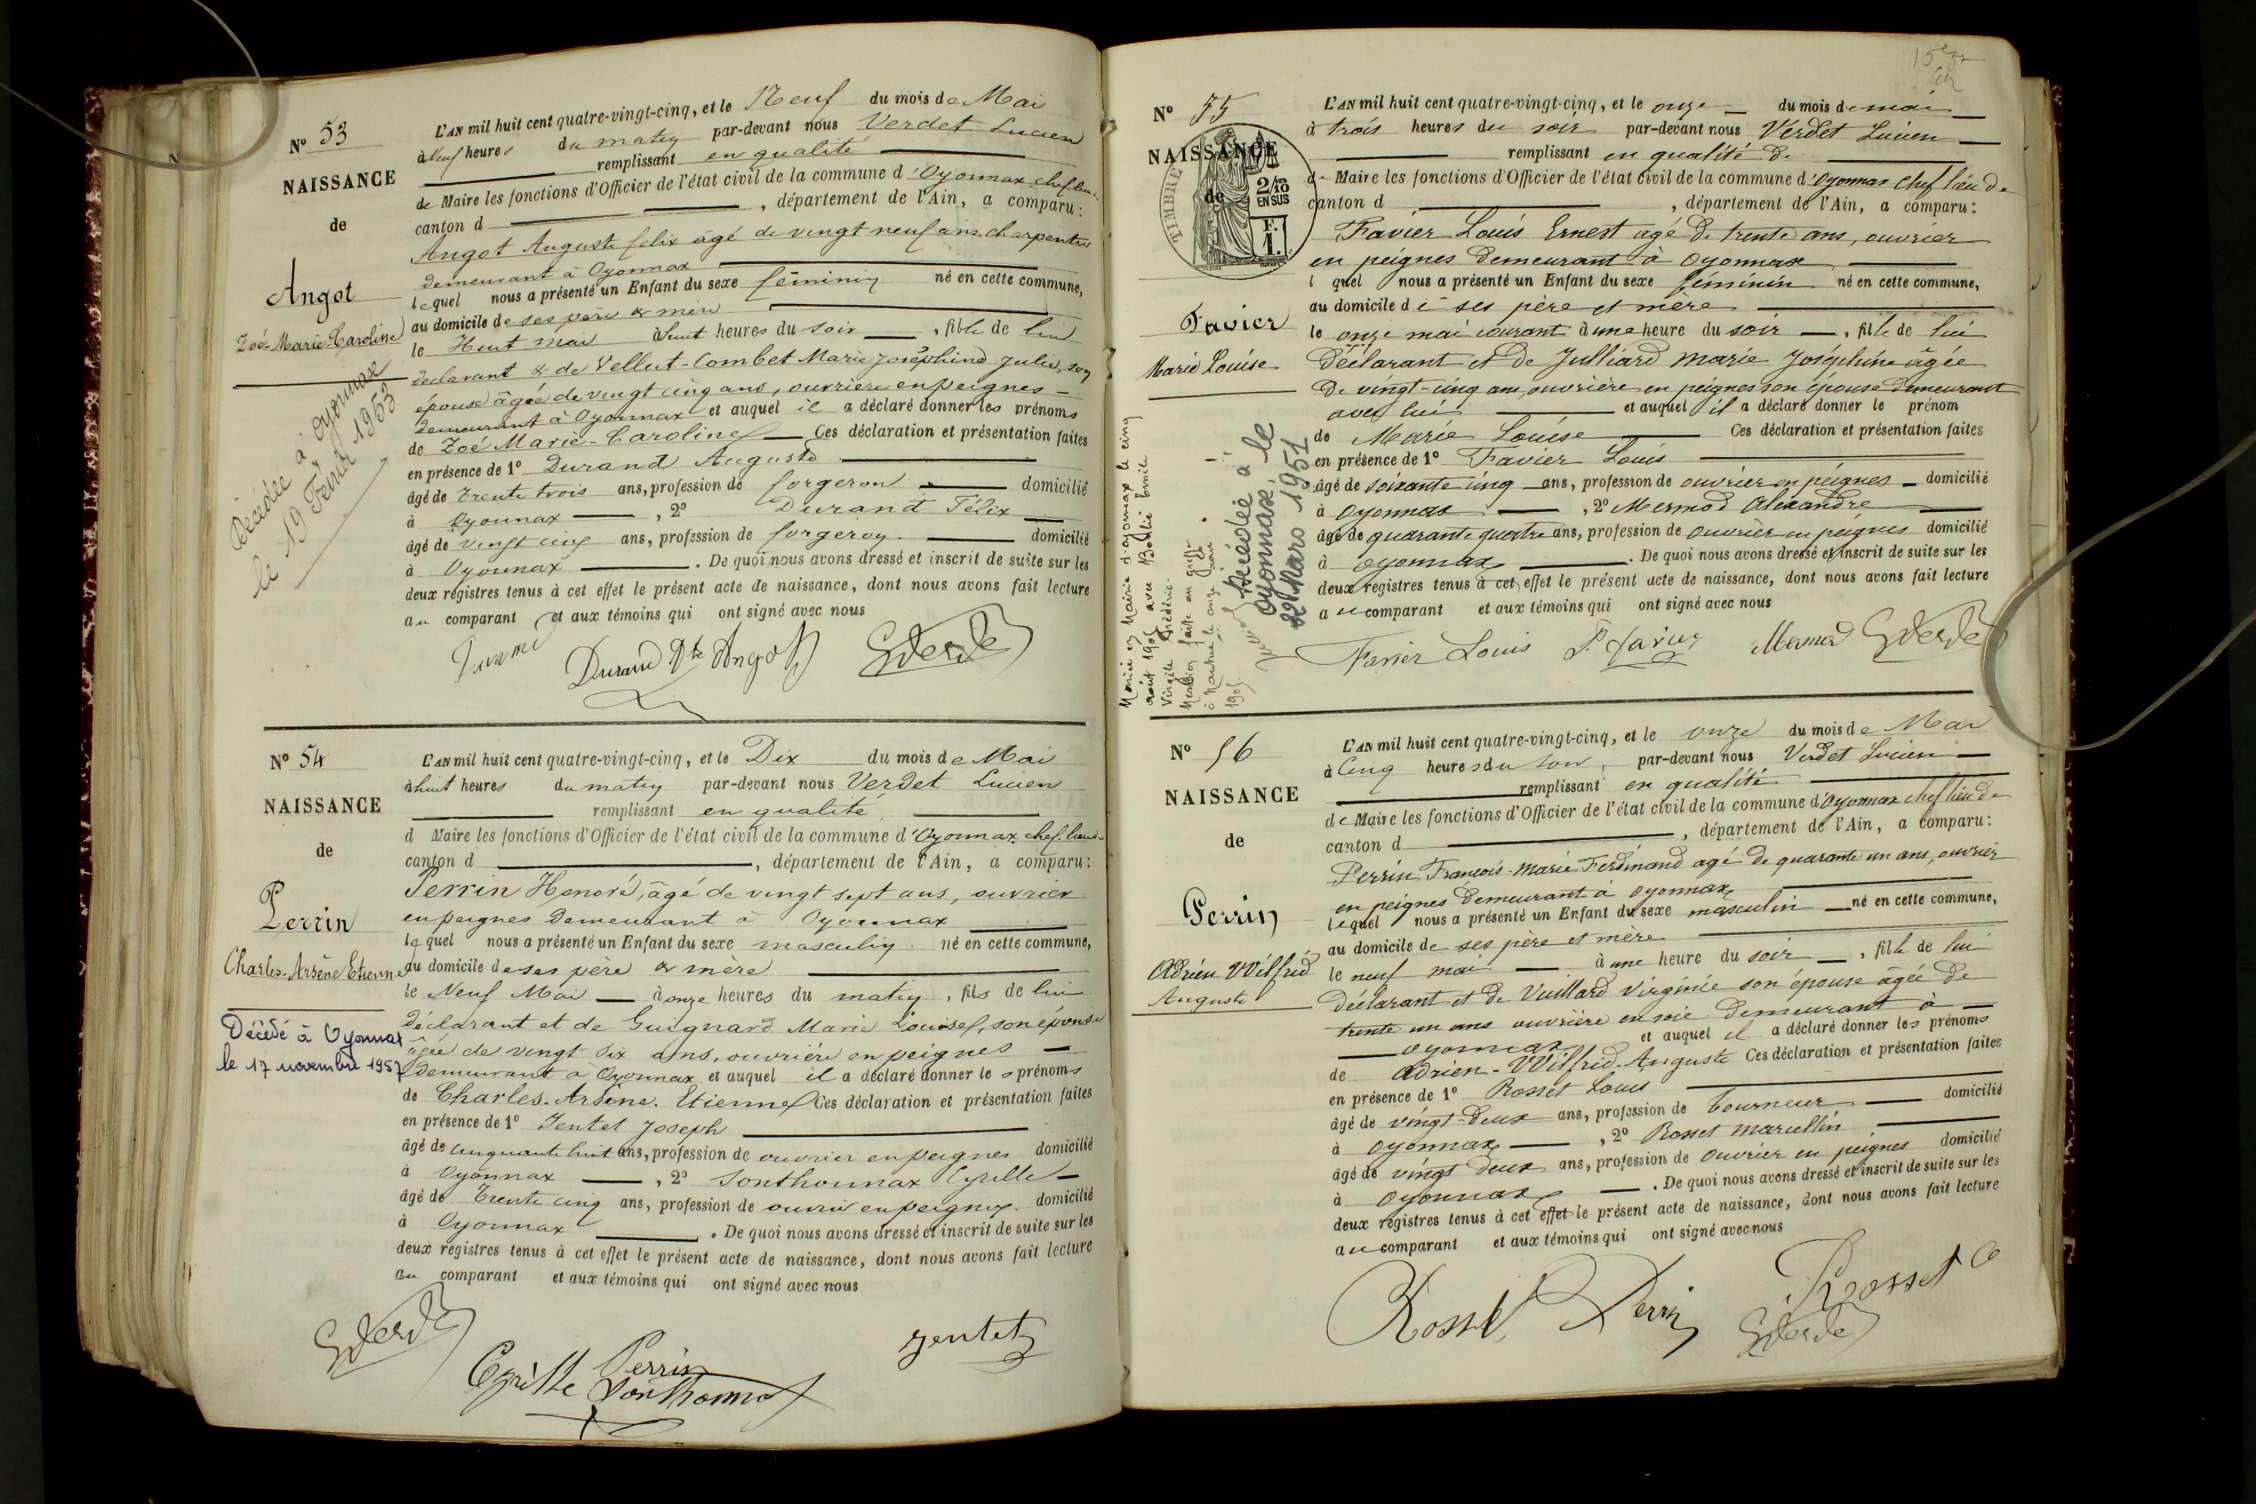 Nº 53
NAISSANCE
de
Angot
Zoé-Marie-Caroline
Décédée à Oyonnax
le 19 Février 1953
L'AN mil huit cent quatre-vingt-cinq, et le Neuf du mois de Mai
à Neuf heures du matin par-devant nous Verdet Lucien
remplissant en qualité
de Maire les fonctions d'Officier de l'état civil de la commune d'Oyonnax chef lieu
canton d , département de l'Ain, a comparu:
Angot Auguste felix âgé de vingt neuf ans charpentier
demeurant à Oyonnax
lequel nous a présenté un Enfant du sexe féminin né en cette commune,
au domicile de ses père & mère
le Huit Mai à huit heures du soir , fille de lui
déclarant & de Vellut-Combet Marie Joséphine Julie, son
épouse âgée de vingt cinq ans, ouvrière en peignes
demeurant à Oyonnax et auquel il a déclaré donner les prénoms
de Zoé Marie-Caroline Ces déclaration et présentation faites
en présence de 1º Durand Auguste
âgé de trente trois ans, profession de forgeron domicilié
à Oyonnax , 2º Durand Félix
âgé de vingt cinq ans, profession de forgeron domicilié
à Oyonnax . De quoi nous avons dressé et inscrit de suite sur les
deux registres tenus à cet effet le présent acte de naissance, dont nous avons fait lecture
au comparant et aux témoins qui ont signé avec nous
Durand Angot
Nº 54
NAISSANCE
de
Perrin
Charles-Arsène Etienne
Décédé à Oyonnax
le 17 novembre 1957
L'AN mil huit cent quatre-vingt-cinq, et le Dix du mois de Mai
à huit heures du matin par-devant nous Verdet Lucien
remplissant en qualité
d Maire les fonctions d'Officier de l'état civil de la commune d'Oyonnax chef lieu
canton d , département de l'Ain, a comparu:
Perrin Honoré, âgé de vingt sept ans, ouvrier
en peignes demeurant à Oyonnax
lequel nous a présenté un Enfant du sexe masculin né en cette commune,
au domicile de ses père & mère
le Neuf Mai à onze heures du matin, fils de lui
déclarant et de Guignard Marie Louise, son épouse
âgée de vingt six ans, ouvrière en peignes
demeurant à Oyonnax et auquel il a déclaré donner les prénoms
de Charles-Arsène-Etienne Ces déclaration et présentation faites
en présence de 1º Jentet Joseph
âgé de cinquante huit ans, profession de ouvrier en peignes domicilié
à Oyonnax , 2º Sonthonnax Cyrille
âgé de trente cinq ans, profession de ouvrier en peignes domicilié
à Oyonnax . De quoi nous avons dressé et inscrit de suite sur les
deux registres tenus à cet effet le présent acte de naissance, dont nous avons fait lecture
au comparant et aux témoins qui ont signé avec nous
Perrin Jentet
Cyrille Sonthonnax
Nº 55
NAISSANCE
de
TIMBRE
2/10
EN SUS
F.
1.
Favier
Marie Louise
Mariée en Mairie d'Oyonnax le cinq
août 1905 avec Bollié Emile
Virgile Frédéric.
Mention faite au greffe
à Nantua le onze août
1905.
Décédée à
Oyonnax, le
22 Mars 1951
L'AN mil huit cent quatre-vingt-cinq, et le onze du mois de mai
à trois heures du soir par-devant nous Verdet Lucien
remplissant en qualité d.
de Maire les fonctions d'Officier de l'état civil de la commune d'Oyonnax chef lieu de
canton d , département de l'Ain, a comparu:
Favier Louis Ernest agé de trente ans, ouvrier
en peignes demeurant à Oyonnax
l quel nous a présenté un Enfant du sexe féminin né en cette commune,
au domicile de ses père et mère
le onze mai courant à une heure du soir , fille de lui
déclarant et de Julliard Marie Joséphine âgée
de vingt-cinq ans, ouvrière en peignes son épouse demeurant
avec lui et auquel il a déclaré donner le prénom
de Marie Louise Ces déclaration et présentation faites
en présence de 1º Favier Louis
âgé de soixante cinq ans, profession de ouvrier en peignes domicilié
à Oyonnax , 2º Mermod Alexandre
âgé de quarante quatre ans, profession de ouvrier en peignes domicilié
à Oyonnax . De quoi nous avons dressé et inscrit de suite sur les
deux registres tenus à cet effet le présent acte de naissance, dont nous avons fait lecture
au comparant et aux témoins qui ont signé avec nous
Favier Louis Favier Mermod
Nº 56
NAISSANCE
de
Perrin
Adrien Wilfrid
Auguste
L'AN mil huit cent quatre-vingt-cinq, et le onze du mois de Mai
à Cinq heures du soir, par-devant nous Verdet Lucien
remplissant en qualité
de Maire les fonctions d'Officier de l'état civil de la commune d'Oyonnax chef lieu de
canton d , département de l'Ain, a comparu:
Perrin François-Marie Ferdinand agé de quarante un ans, ouvrier
en peignes demeurant à Oyonnax
lequel nous a présenté un Enfant du sexe masculin né en cette commune,
au domicile de ses père et mère
le neuf mai à une heure du soir , fils de lui
déclarant et de Vuillard Virginie son épouse âgée de
trente un ans ouvrière en soie demeurant à
Oyonnax et auquel il a déclaré donner les prénoms
de Adrien-Wilfrid-Auguste Ces déclaration et présentation faites
en présence de 1º Rosset Louis
âgé de vingt-deux ans, profession de tourneur domicilié
à Oyonnax , 2º Rosset Marcellin
âgé de vingt deux ans, profession de ouvrier en peignes domicilié
à Oyonnax . De quoi nous avons dressé et inscrit de suite sur les
deux registres tenus à cet effet le présent acte de naissance, dont nous avons fait lecture
au comparant et aux témoins qui ont signé avec nous
Rosset Perrin Rosset